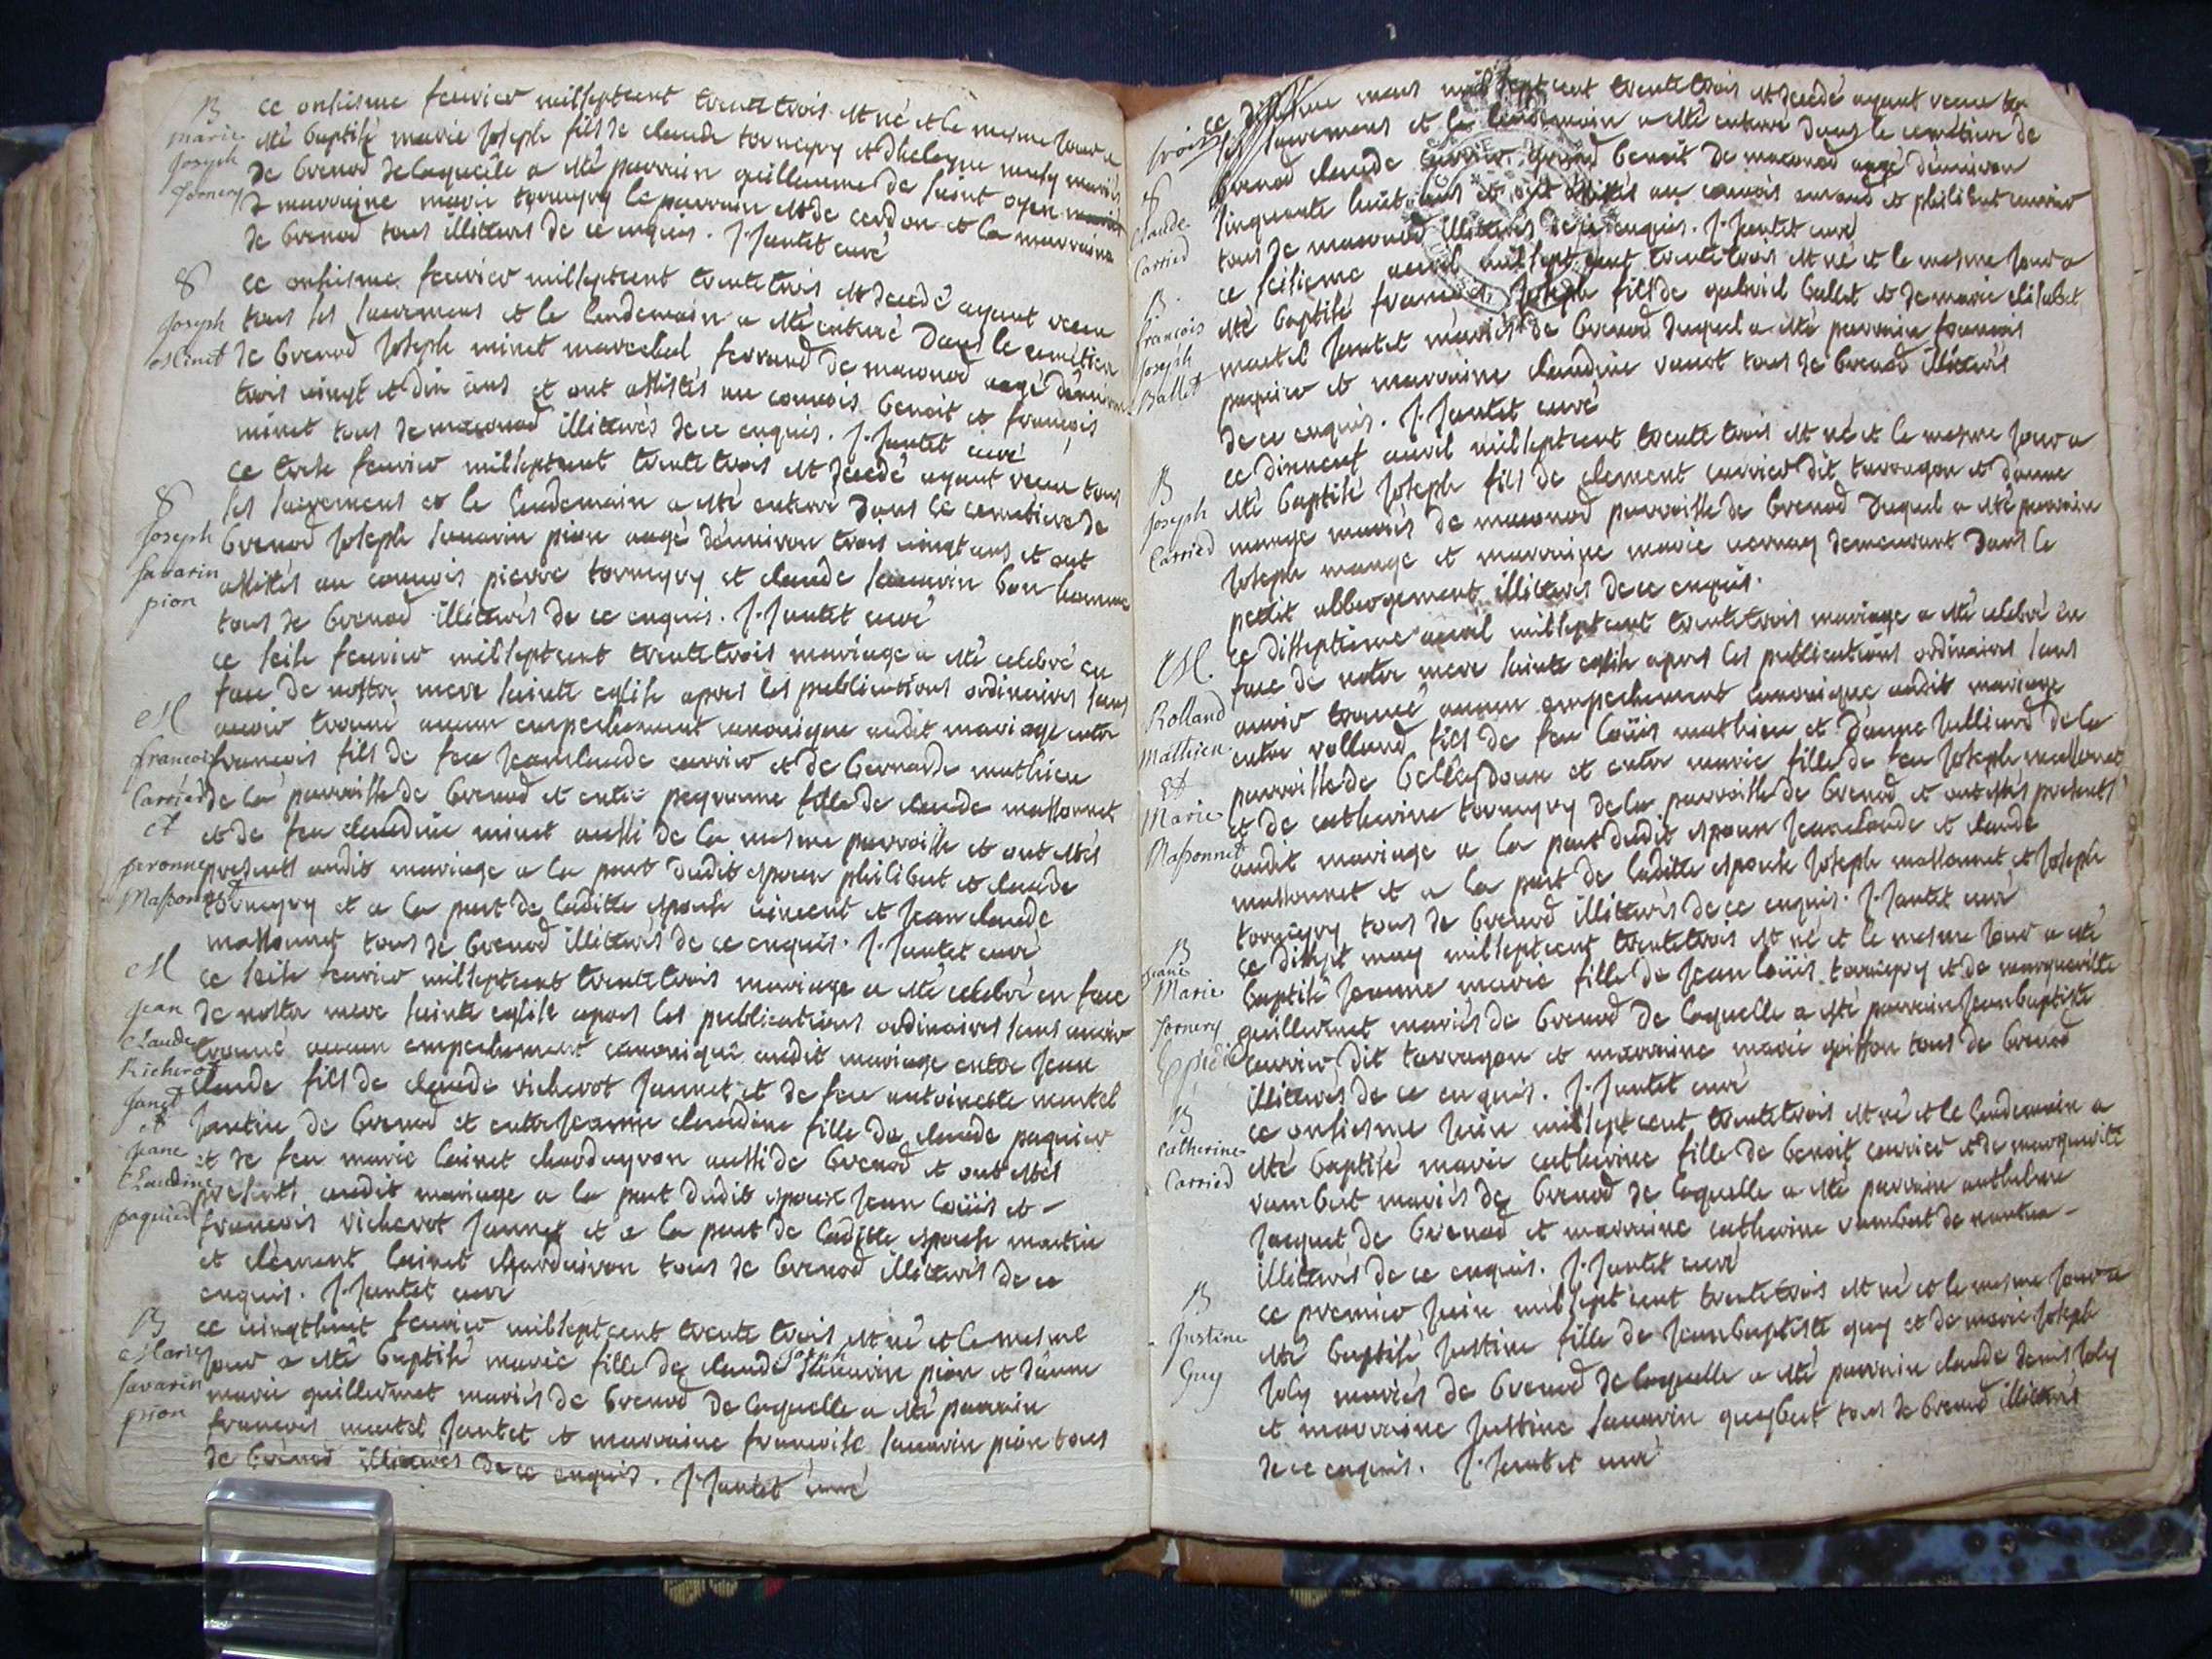 B
marie
Joseph
Tornery
ce onsiesme feuvrier milsepteent trente trois est né et le mesme jour a
esté baptisé marie Joseph fils de claude torneyry et
de brenod de laquelle a esté parrain guillaume de saint oyen
& marraine marie torneyry le parrain est de cerdon et la marraine
de brenod tous illitterés de ce enquis. J. Jantet curé
S
Joseph
Minet
ce onsiesme feuvrier milseptcent trente trois est decedé ayant receu
tous ses sacremens et le lendemain a esté enterré dans le cemetiere
de brenod Joseph minet marechal ferrand de maconod aagé d'environ
trois vingt et dix ans et ont assistés au convois benoit et francois
minet tous de maconod illitterés de ce enquis. J. Jantet curé
S
Joseph
Savarin
pion
ce trese feuvrier milseptcent trente trois est decedé ayant receu tous
ses sacremens et le lendemain a esté enterré dans le cemetiere de
brenod Joseph sauarin pion aagé d'environ trois vingt ans et ont
assistés au convois pierre torneyry et claude sauarin bon homme
tous de brenod illitterés de ce enquis. J. Jantet curé
M
francois
Carried
et
peronne
Massonnet
ce seise feuvrier milseptcent trente trois mariage a esté celebré en
face de nostre mere sainte eglise apres les publications ordinaires sans
auoir trouué aucun empechement canonique audit mariage entre
francois fils de feu Jeanclaude carrier et de bernarde mathieu
de la parroisse de brenod et entre peyronne fille de claude massonnet
et de feu claudine minet aussi de la mesme parroisse et ont estés
presents audit mariage a la part dudit espoux philibert et claude
torneyry et a la part de laditte espouse vincent et Jean claude
massonnet tous de brenod illitterés de ce enquis. J. Jantet curé
M
Jean
Claude
Richerot
Janet
et
Jeane
Claudine
paquied
ce seise feuvrier milseptcent trente trois mariage a esté celebré en face
de nostre mere sainte eglise apres les publications ordinaires sans auoir
trouué aucun empechement canonique audit mariage entre Jean
claude fils de claude richerot Jannet et de feu antoinette martel
Jantin de brenod et entre Jeanne claudine fille de claude paquier
et de feu marie lainet charduyron aussi de brenod et ont estés
presents audit mariage a la part dudit espoux Jean louïs et
francois richerot Jannet et a la part de laditte espouse martin
et clement lainet charduiron tous de brenod illitterés de ce
enquis. J. Jantet curé
B
Marie
Savarin
pion
ce vingthuit feuvrier milseptcent trente trois est né et le mesme
jour a esté baptisé marie fille de claude Joseph sauarin pion et d'anne
marie guillermet mariés de brenod de laquelle a esté parrain
francois martel Jantet et marraine francoise sauarin pion tous
de brenod illitterés de ce enquis. J. Jantet curé
S
Claude
Carried
ce mars mil sept cent trente trois est decedé ayant receu
les sacremens et le lendemain a esté enterré dans le cemetiere de
brenod claude carrier benoit de maconod aagé d'environ
sinquante huit ans et ont assistés au convois et philibert carrier
tous de maconod illitterés de ce enquis. J. Jantet curé
B
francois
Joseph
Ballet
ce seisieme auril milsept cent trente trois est né et le mesme jour a
esté baptisé francois Joseph fils de gabriel ballet et de marie elisabet
martel Jantet mariés de brenod duquel a esté parrain francois
paquier et marraine claudine tous de brenod illitterés
de ce enquis. J. Jantet curé
B
Joseph
Carried
ce dixneuf auril milseptcent trente trois est né et le mesme jour a
esté baptisé Joseph fils de clement carrier dit tarragon et d'anne
mange mariés de maconod parroisse de brenod duquel a esté parrain
Joseph mange et marraine marie demeurant dans le
petit abbergement illitterés de ce enquis.
M.
Rolland
Mathieu
et
Marie
Massonnet
ce disseptieme auril milseptcent trente trois mariage a esté celebré en
face de notre mere sainte eglise apres les publications ordinaires sans
auoir trouué aucun empechement canonique audit mariage
entre rolland fils de feu louïs mathieu et d'anne Julliard de la
parroisse de belleydoux et entre marie fille de feu Joseph massonnet
et de catherine torneyry de la parroisse de brenod et ont estés presents
audit mariage a la part dudit espoux Jeanclaude et claude
massonnet et a la part de laditte espouse Joseph massonnet et Joseph
torneyry tous de brenod illitterés de ce enquis. J. Jantet curé
B
Jeane
Marie
Tornery
ce may milseptcent trente trois est né et le mesme jour a esté
baptisé Jeanne marie fille de Jean louïs torneyry et de marguerite
guillermet mariés de brenod de laquelle a esté parrain Jeanbaptiste
carrier dit tarragon et marraine marie goiffon tous de brenod
illitterés de ce enquis. J. Jantet curé
B
Catherine
Carried
ce onsiesme Juin milseptcent trente trois est né et le lendemain a
esté baptisé marie catherine fille de benoit carrier et de marguerite
rambert mariés de brenod de laquelle a esté parrain anthelme
Jacquet de brenod et marraine catherine rambert de nantua
illitterés de ce enquis. J. Jantet curé
B
Justine
Guy
ce premier Juin milsept cent trente trois est né et le mesme jour a
esté baptisé Justine fille de Jeanbaptiste guy et de marie Joseph
Joly mariés de brenod de laquelle a esté parrain claude denis Joly
et marraine Justine sauarin tous de brenod illitterés
de ce enquis. J. Jantet curé